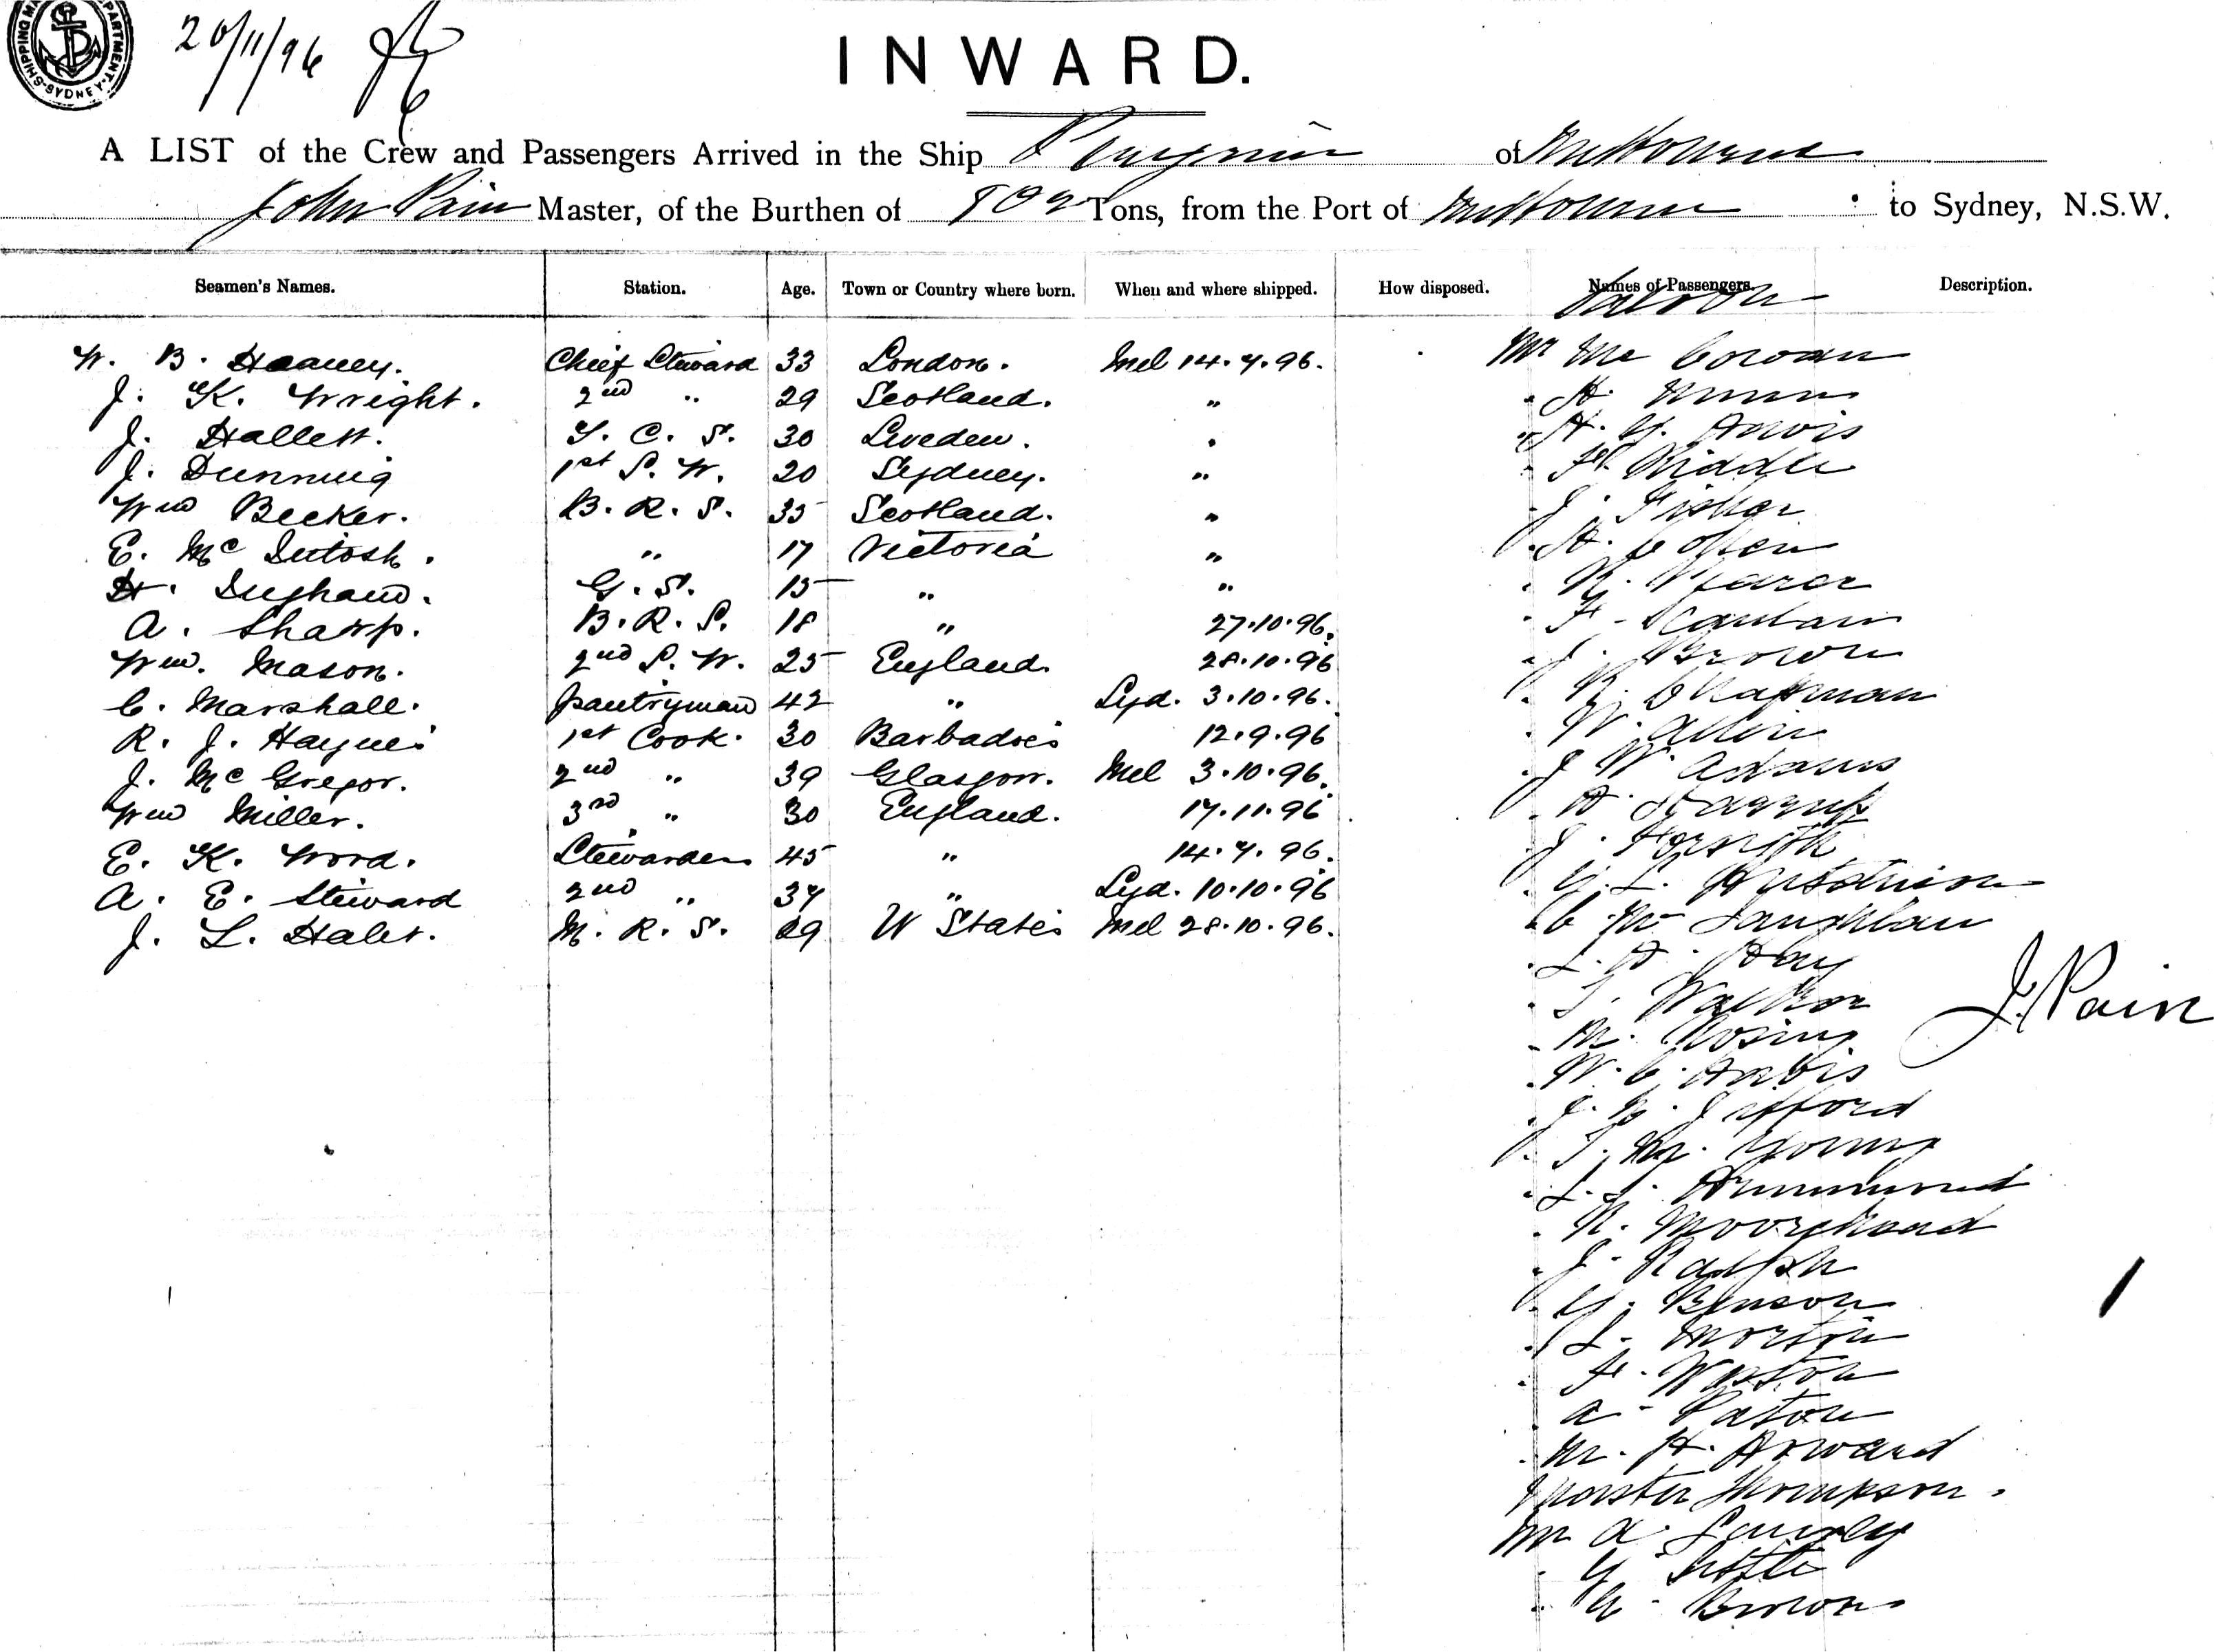 SHIPPING MA PARTMENT. SYDNEY.
20/11/96
INWARD.
A LIST of the Crew and Passengers Arrived in the Ship Peregrine of Melbourne
John Pain Master, of the Burthen of Tons, from the Port of Melbourne to Sydney, N.S.W.
Seamen's Names. Station. Age. Town or Country where born. When and where shipped. How disposed. Names of Passengers. Description.
Saloon
W. B. Heaney. Chief Steward 33 London. Mel 14.7.96. Mr Mc Cowan
J. K. Wright. 2nd " 29 Scotland. " " H. Nunn
J. Hallett. F. C. S. 30 Sweden. " "
J. Dunning 1st S. W. 20 Sydney. " " Liddle
Wm Becker. B. R. S. 35 Scotland. " " J. Fisher
E. McIntosh. " 17 Victoria " " H. Cohen
H. G. S. 15 " " "
A. Sharp. B. R. S. 18 " 27.10.96. " F. Scanlan
Wm. Mason. 2nd S. W. 25 England. 28.10.96 " J. Brown
C. Marshall. pantryman 42 " Syd. 3.10.96. " R. Chapman
R. J. Haynes 1st Cook. 30 Barbadoes 12.9.96 " W. Allen
J. McGregor. 2nd " 39 Glasgow. Mel 3.10.96. " J W Adams
Wm Miller. 3rd " 30 England. 17.11.96 " H.
" J. Forsyth
E. K. Word. Stewardess 45 " 14.7.96.
A. E. Steward 2nd " 37 " Syd. 10.10.96
J. L. Hales. M. R. S. 29 U States Mel 28.10.96. " C. McLaughlan
" L. H. Hay
" T. Walker
J. Pain
" M. Rosing
" W. C.
" J. Jefford
" T. M. Young
" L. J. Hummond
" R. Moorehead
" J. Ralph
" G. Benson
" L. Morton
" F. Weston
" A. Paton
" M. H. Howard
Master Thompson.
Mr A.
" G. Little
" G. Brown